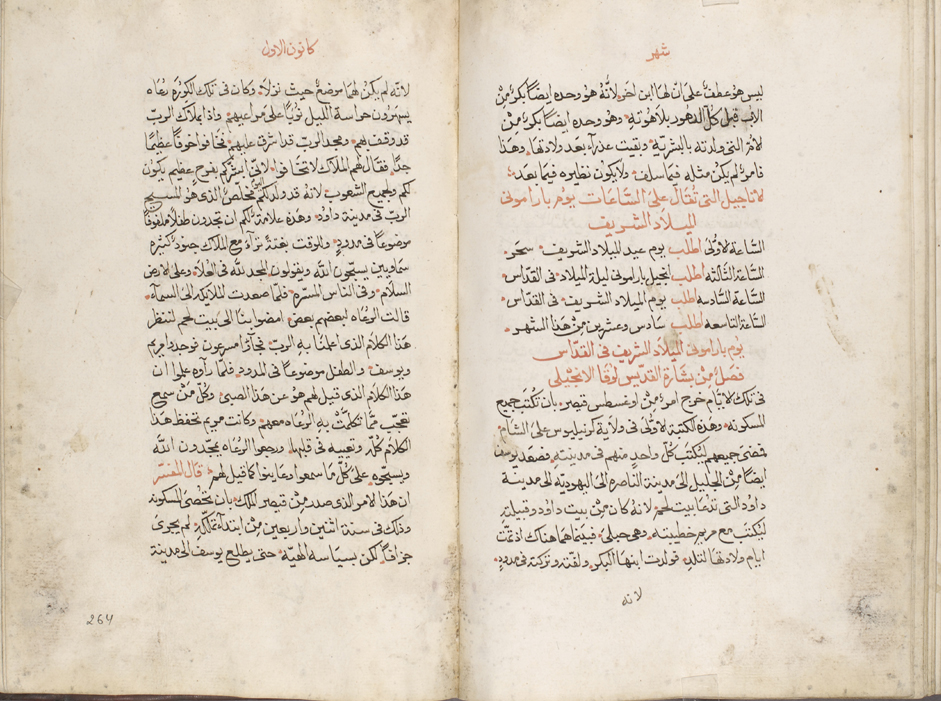 شهر
ليس هو عطفًا على ان لها ابن اخر لانه هو وحده ايضًا بكرٌ من
الاب قبل كل الدهور بلاهوته وهو وحده ايضًا بكرٌ من
الام التي ولدته بالبشرية وبقيت عذرآء بعد ولادتها وهذا
فامرٌ لم يكن مثله فيما سلف ولا يكون نظيره فيما بعد
لاناجيل التي تقال على السَّاعات يوم بارامونى
الميلاد الشريف
السَّاعة الاولى اطلب يوم عيد الميلاد الشريف سحر
السَّاعة الثالثه اطلب انجيل بارامونى ليلة الميلاد في القدّاس
السَّاعة السَّادسه اطلب يوم الميلاد الشريف في القدّاس
السَّاعة التاسعه اطلب سَادس وعشرين من هذا الشهر
يوم بارامونى الميلاد الشريف في القدّاس
فصل من بشارة القديس لوقا الانجيلى
في تلك الايّام خرج امرٌ من اوغسطس قيصر بان تكتتب جميع
المسكونه وهذه الكتبة الاولى في ولاية كرنيليوس على الشام
فمضى جميعهم ليكتتب كلّ واحدٍ منهم في مدينته فصعد يوسف
ايضًا من الجليل الى مدينة الناصره الى اليهودية الى مدينة
داود التي تدعا بيت لحم لانه كان من بيت داود وقبيلته
ليكتتب مع مريم خطيبته وهي حبلى فبينما هما هناك اذ تمّت
ايام ولادتها لتلد فولدت ابنها البكر ولفته وتركته في مدودٍ
لانه
كانون الاول
لانه لم يكن لهما موضعٌ حيث نزلا وكان في تلك الكورة رعاه
يسهرون حراسة الليل نُوَبًا على مراعيهم واذا بملاك الربّ
قد وقف بهم ومجد الربّ قد اشرق عليهم فخافوا خوفًا عظيمًا
جدًّا فقال لهم الملاك لا تخافوا لانّي ابشركم بفرح عظيم يكون
لكم ولجميع الشعوب لانه قد ولد لكم اليوم مخلص الذي هو المسيح
الربّ في مدينة داود وهذه علامة لكم ان تجدون طفلاً ملفوفًا
موضوعًا في مدودٍ وللوقت بغتةً ترآءَ مع الملاك جنود كثيره
سماويين يسبّحون الله ويقولون المجد لله في العُلا وعلى الارض
السلام وفي الناس المسرّه فلمّا صعدت الملايكه الى السمآء
قالت الرعاه لبعضهم بعض امضوا بنا الى بيت لحم لننظر
هذا الكلام الذي اعلمنا به الربّ فجآؤا مسرعون فوجدوا مريم
ويوسف والطفل موضوعًا في المدود فلمّا راوه علموا ان
هذا الكلام الذي قيل لهم هو عن هذا الصبي وكلّ من سمع
تعجّب ممّا تكلمَتْ به الرعاه معهم وكانت مريم تحفظ هذا
الكلام كلّه وتعيه في قلبها ورجعوا الرعاه يمجّدون الله
ويسبّحوه على كلّ ما سمعوا وعاينوا كما قيل لهم قال المفسّر
ان هذا الامر الذي صدر من قيصر الملك بان تحصى المسكونه
وذلك في سنة اثنين واربعين من ابتدآء تملّكه لم يجرى
جزافًا لكن بسياسه الهيّه حتى يطلع يوسف الى مدينة
264